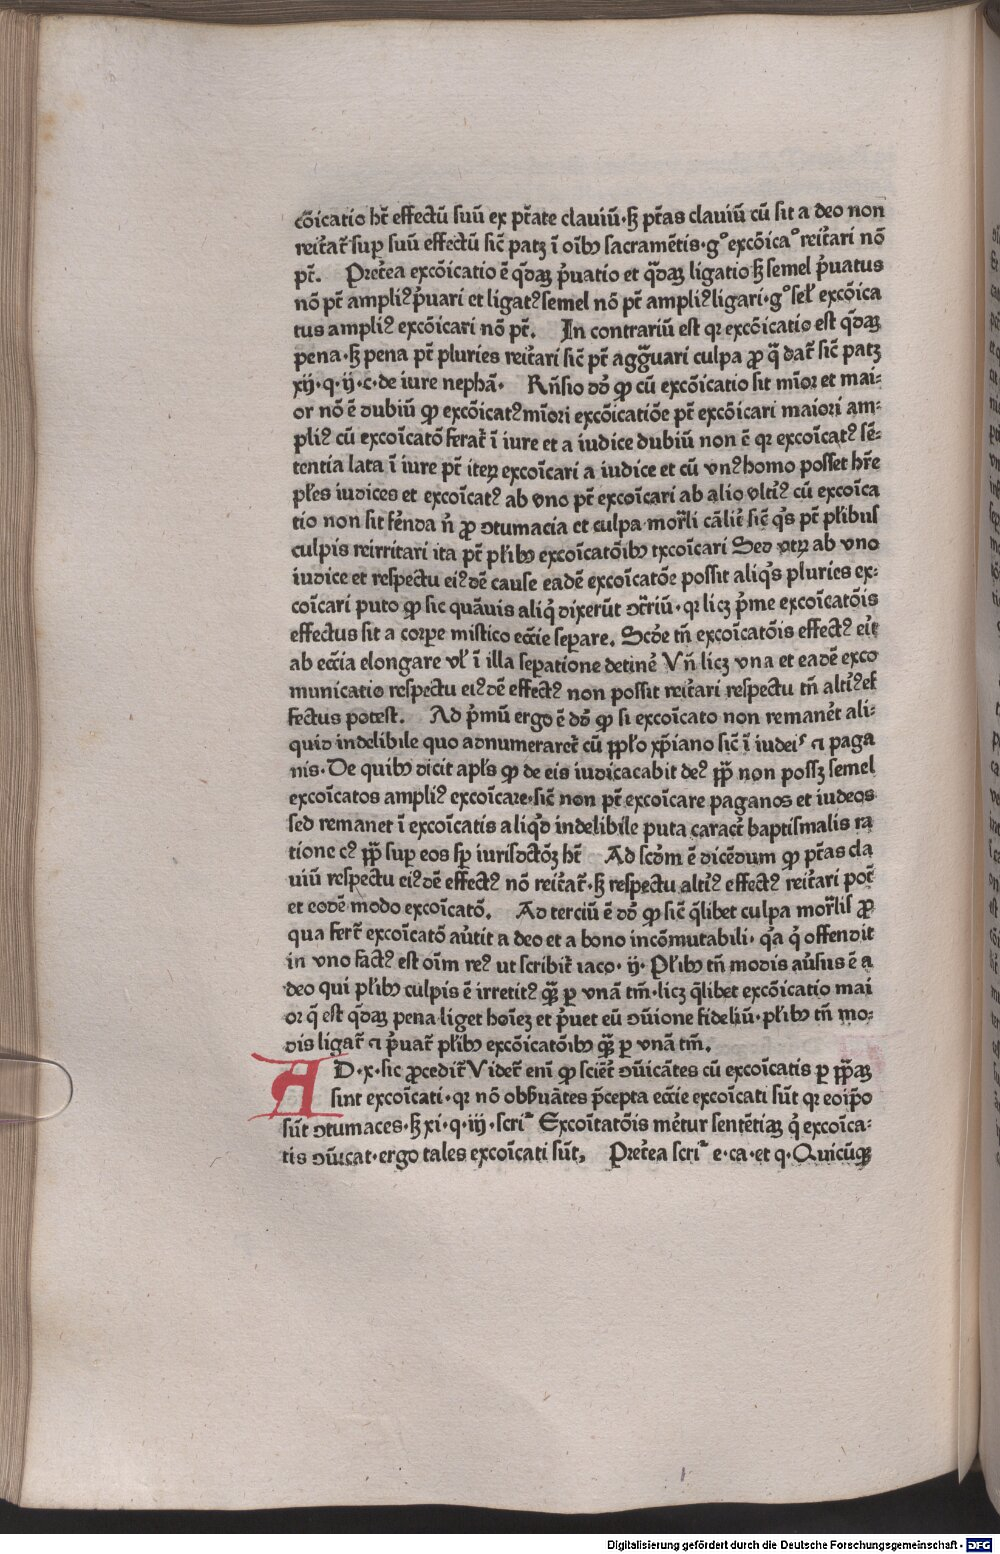 cōicatio hr̄ effectū suū ex pr̄ate clauiū·sꝫ pr̄as clauiū cū sit a deo non
reit̄ar̄ sup̱ suū effectū sic̄ patꝫ ī oībꝰ sacramētis·gͦ excōicaͦ reit̄ari nō
pt̄. Pret̄ea excōicatio ē q̄dаꝫ p̄uatio et q̄daꝫ ligatio sꝫ semel p̄uatus
nō pt̄ ampliꝰ p̄uari et ligatꝰ semel nō pt̄ ampliꝰ ligari·gͦ sel̄ excōica
tus ampliꝰ excōicari nō pt̄. In contrariū est qꝛ excōicatio est q̄daꝫ
pena·sꝫ pena pt̄ pluries reit̄ari sic̄ pt̄ agg̃uari culpa ꝓ q̄ dat̄ sic̄ patꝫ
xij·q·ij·c·de iure nephā· Rn̄sio dō ꝙ cū excōicatio sit mīor et mai⸗
or nō ē dubiū ꝙ excōicatꝰ mīori excōicatiōe pt̄ excōicari maiori am⸗
pliꝰ cū excoīcatō ferat̄ ī iure et a iudice dubiū non ē qꝛ excoīcatꝰ sē⸗
tentia lata ī iure pt̄ iteꝝ excoīcari a iudice et cū vnꝰ homo posset hr̄e
pl̄es iudices et excoīcatꝰ ab vno pt̄ excoīcari ab alio vltiꝰ cū excoīca
tio non sit fēnda n̄ ꝓ ꝯtumacia et culpa mor̄li cālit̄ sic̄ q̄s pt̄ pl̄ibus
culpis reirritari ita pt̄ pl̄ibꝰ excoīcatōibꝰ txcoīcari Sed vtꝝ ab vno
iudice et respectu eiꝰdē cause eadē excoīcatōe possit aliq̄s pluries ex⸗
coīcari puto ꝙ sic quāuis aliq̄ dixerūt ꝯtr̄iū·qꝛ licꝫ p̄me excoīcatōis
effectus sit a corꝑe mistico ecc̄ie seꝑare. Scd̄e tn̄ excoīcatōis effectꝰ eīt
ab ecc̄ia elongare vl̄ ī illa seꝑatione detinē Vn̄ licꝫ vna et eadē exco
municatio respectu eiꝰdē effectꝰ non possit reit̄ari respectu tn̄ altiꝰ ef
fectus potest. Ad p̄mū ergo ē dō ꝙ si excoīcato non remanēt ali⸗
quid indelibile quo adnumeraret̄ cū pp̄lo xp̄iano sic̄ ī iudeis ⁊ paga
nis·De quibꝰ dicit apl̄s ꝙ de eis iudicacabit deꝰ pp̄ non possꝫ semel
excoīcatos ampliꝰ excoīcare·sic̄ non pt̄ excoīcare paganos et iudeos
sed remanet ī excoīcatis aliq̄d indelibile puta caract̄ baptismalis ra
tione cꝰ pp̄ suꝑ eos sp̄ iurisdctōꝫ ht̄ Ad scd̄m ē dicēdum ꝙ pr̄as cla
uiū respectu eiꝰdē effectꝰ nō reit̄at̄·sꝫ respectu altiꝰ effectꝰ reit̄ari pot̄
et eodē modo excoīcatō. Ad terciū ē dō ꝙ sic̄ q̄libet culpa mor̄lis ꝓ
qua fert̄ excoīcatō aūtit a deo et a bono incōmutabili·q̄a q̄ offendit
in vno factꝰ est oīm reꝰ ut scribit̄ iaco·ij·Pl̄ibꝰ tn̄ modis aūsus ē a
deo qui pl̄ibꝰ culpis ē irretitꝰ q̄ꝫ ꝑ vnā tm̄·licꝫ q̄libet excōicatio mai
or q̄ est q̄daꝫ pena liget hoīeꝫ et p̄uet eū ꝯūione fideliū·pl̄ibꝰ tn̄ mo⸗
dis ligat̄ ⁊ p̄uat̄ pl̄ibꝰ excōicatōibꝰ q̄ꝫ ꝑ vnā tm̄.
AD·x·sic ꝓcedit̄ Videt̄ enī ꝙ scien̄t ꝯūicātes cū excoīcatis ꝑ ipsaꝫ
sint excoīcati·qꝛ nō obbuātes p̄cepta ecc̄ie excoīcati sūt qꝛ eoip̄o
sūt ꝯtumaces·sꝫ xi·q·iij·scri Excoītatōis mētur sentētiaꝫ q̄ excoīca⸗
tis ꝯūicat·ergo tales excoīcati sūt, Pret̄ea scri e·ca·et q·Quicūꝗꝫ
Digitalisierung gefördert durch die Deutsche Forschungsgemeinschaft - DFG